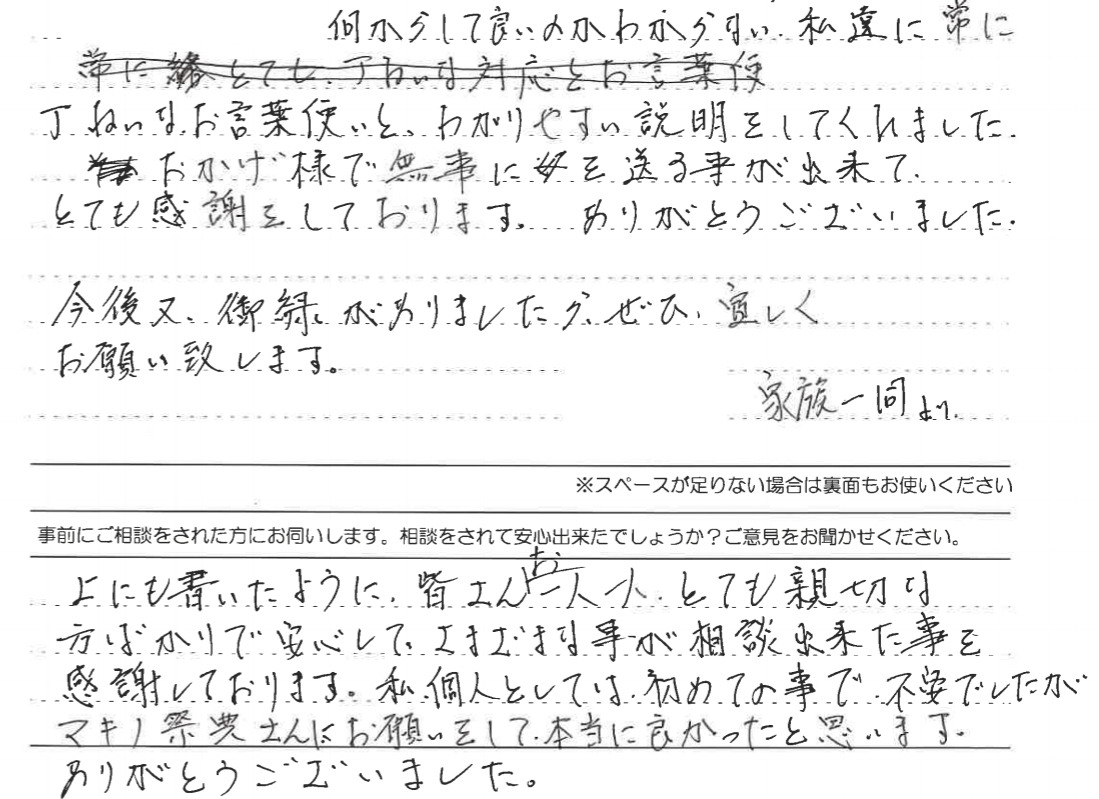 何からして良いのかわからない、私達に常に
常に

とても、丁ねいな対応とお言葉使
丁ねいなお言葉使いと、わかりやすい説明をしてくれました。
おかげ様で無事に父を送る事が出来て、
とても感謝をしております。 ありがとうございました。
今後又、御縁がありましたら、ぜひ、宜しく
お願い致します。
家族一同より。
※スペースが足りない場合は裏面もお使いください
事前にご相談をされた方にお伺いします。相談をされて安心出来たでしょうか？ご意見をお聞かせください。
上にも書いたように、皆さんお一人一人、とても親切な
方ばかりで安心して、さまざまな事が相談出来た事を
感謝しております。私個人としては、初めての事で、不安でしたが
マキノ祭典さんにお願いをして、本当に良かったと思います。
ありがとうございました。